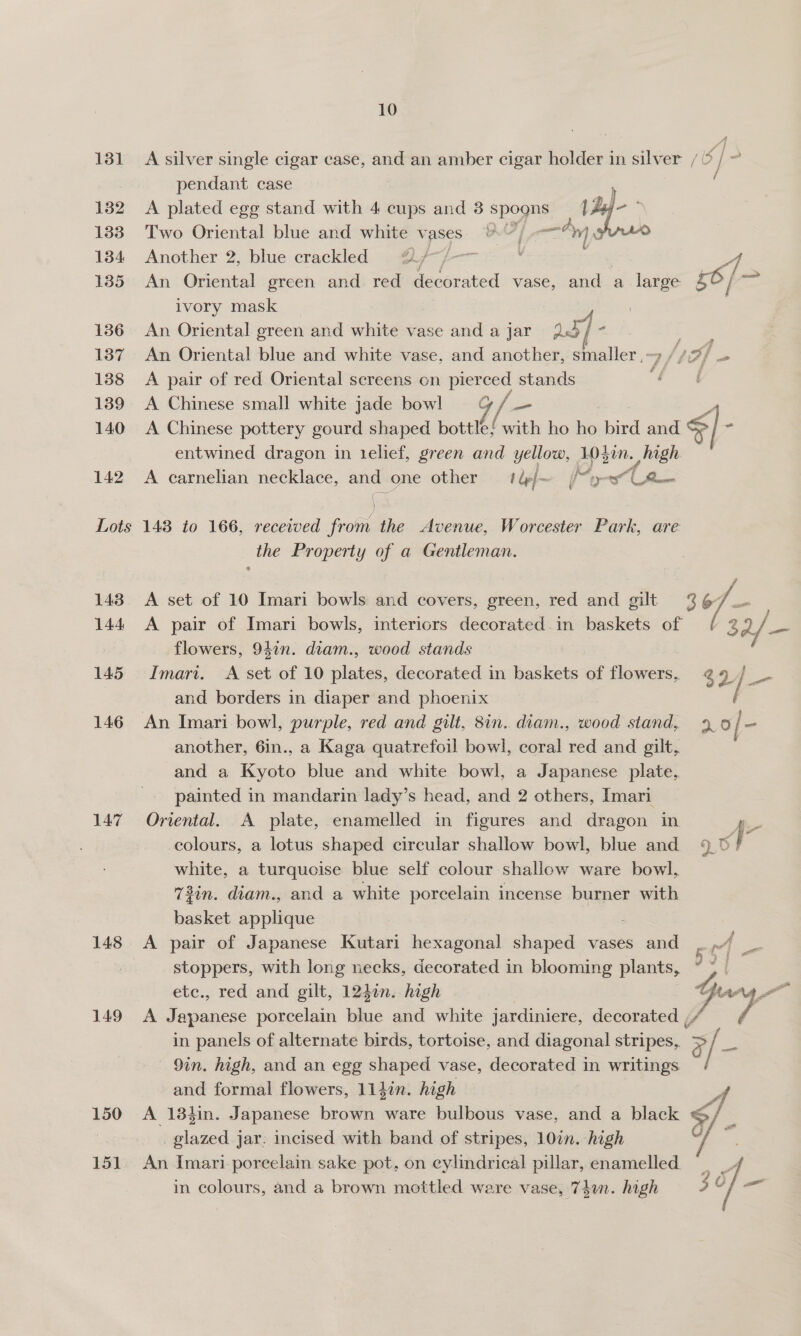 10
131 A silver single cigar case, and an amber cigar holder in silver
pendant case
132 A plated egg stand with 4 cups and 3 spoons
133 Two Oriental blue and white vases
134 Another 2, blue crackled
135 An Oriental green and red decorated vase, and a large 56/-
ivory mask
136 An Oriental green and white vase and a jar 25/-
137 An Oriental blue and white vase, and another, smaller
138 A pair of red Oriental screens on pierced stands
139 A Chinese small white jade bowl 9/-
140 A Chinese pottery gourd shaped bottle, with ho ho bird and
entwined dragon in relief, green and yellow, 10½in. high
142 A carnelian necklace, and one other
Lots 143 to 166, received from the Avenue, Worcester Park, are
the Property of a Gentleman.
143 A set of 10 Imari bowls and covers, green, red and gilt 36/-
144 A pair of Imari bowls, interiors decorated in baskets of 32/-
flowers, 9½in. diam., wood stands
145 Imari. A set of 10 plates, decorated in baskets of flowers, 32/-
and borders in diaper and phoenix
146 An Imari bowl, purple, red and gilt, 8in. diam., wood stand, 20/-
another, 6in., a Kaga quatrefoil bowl, coral red and gilt,
and a Kyoto blue and white bowl, a Japanese plate,
painted in mandarin lady's head, and 2 others, Imari
147 Oriental. A plate, enamelled in figures and dragon in
colours, a lotus shaped circular shallow bowl, blue and
white, a turquoise blue self colour shallow ware bowl,
7¾in. diam., and a white porcelain incense burner with
basket applique
148 A pair of Japanese Kutari hexagonal shaped vases and
stoppers, with long necks, decorated in blooming plants,
etc., red and gilt, 12½in. high
149 A Japanese porcelain blue and white jardiniere, decorated
in panels of alternate birds, tortoise, and diagonal stripes,
9in. high, and an egg shaped vase, decorated in writings
and formal flowers, 11½in. high
150 A 13½in. Japanese brown ware bulbous vase, and a black
glazed jar, incised with band of stripes, 10in. high
151 An Imari porcelain sake pot, on cylindrical pillar, enamelled
in colours, and a brown mottled ware vase, 7½in. high 30/-